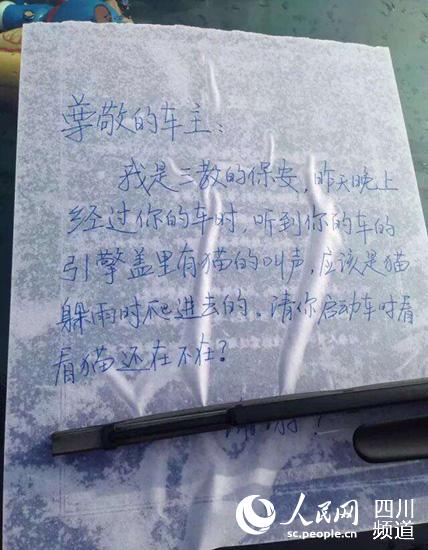 尊敬的车主：
我是三教的保安，昨天晚上
经过你的车时，听到你的车的
引擎盖里有猫的叫声，应该是猫
躲雨时爬进去的。请你启动车时看
看猫还在不在？
人民网 四川
sc.people.cn 频道